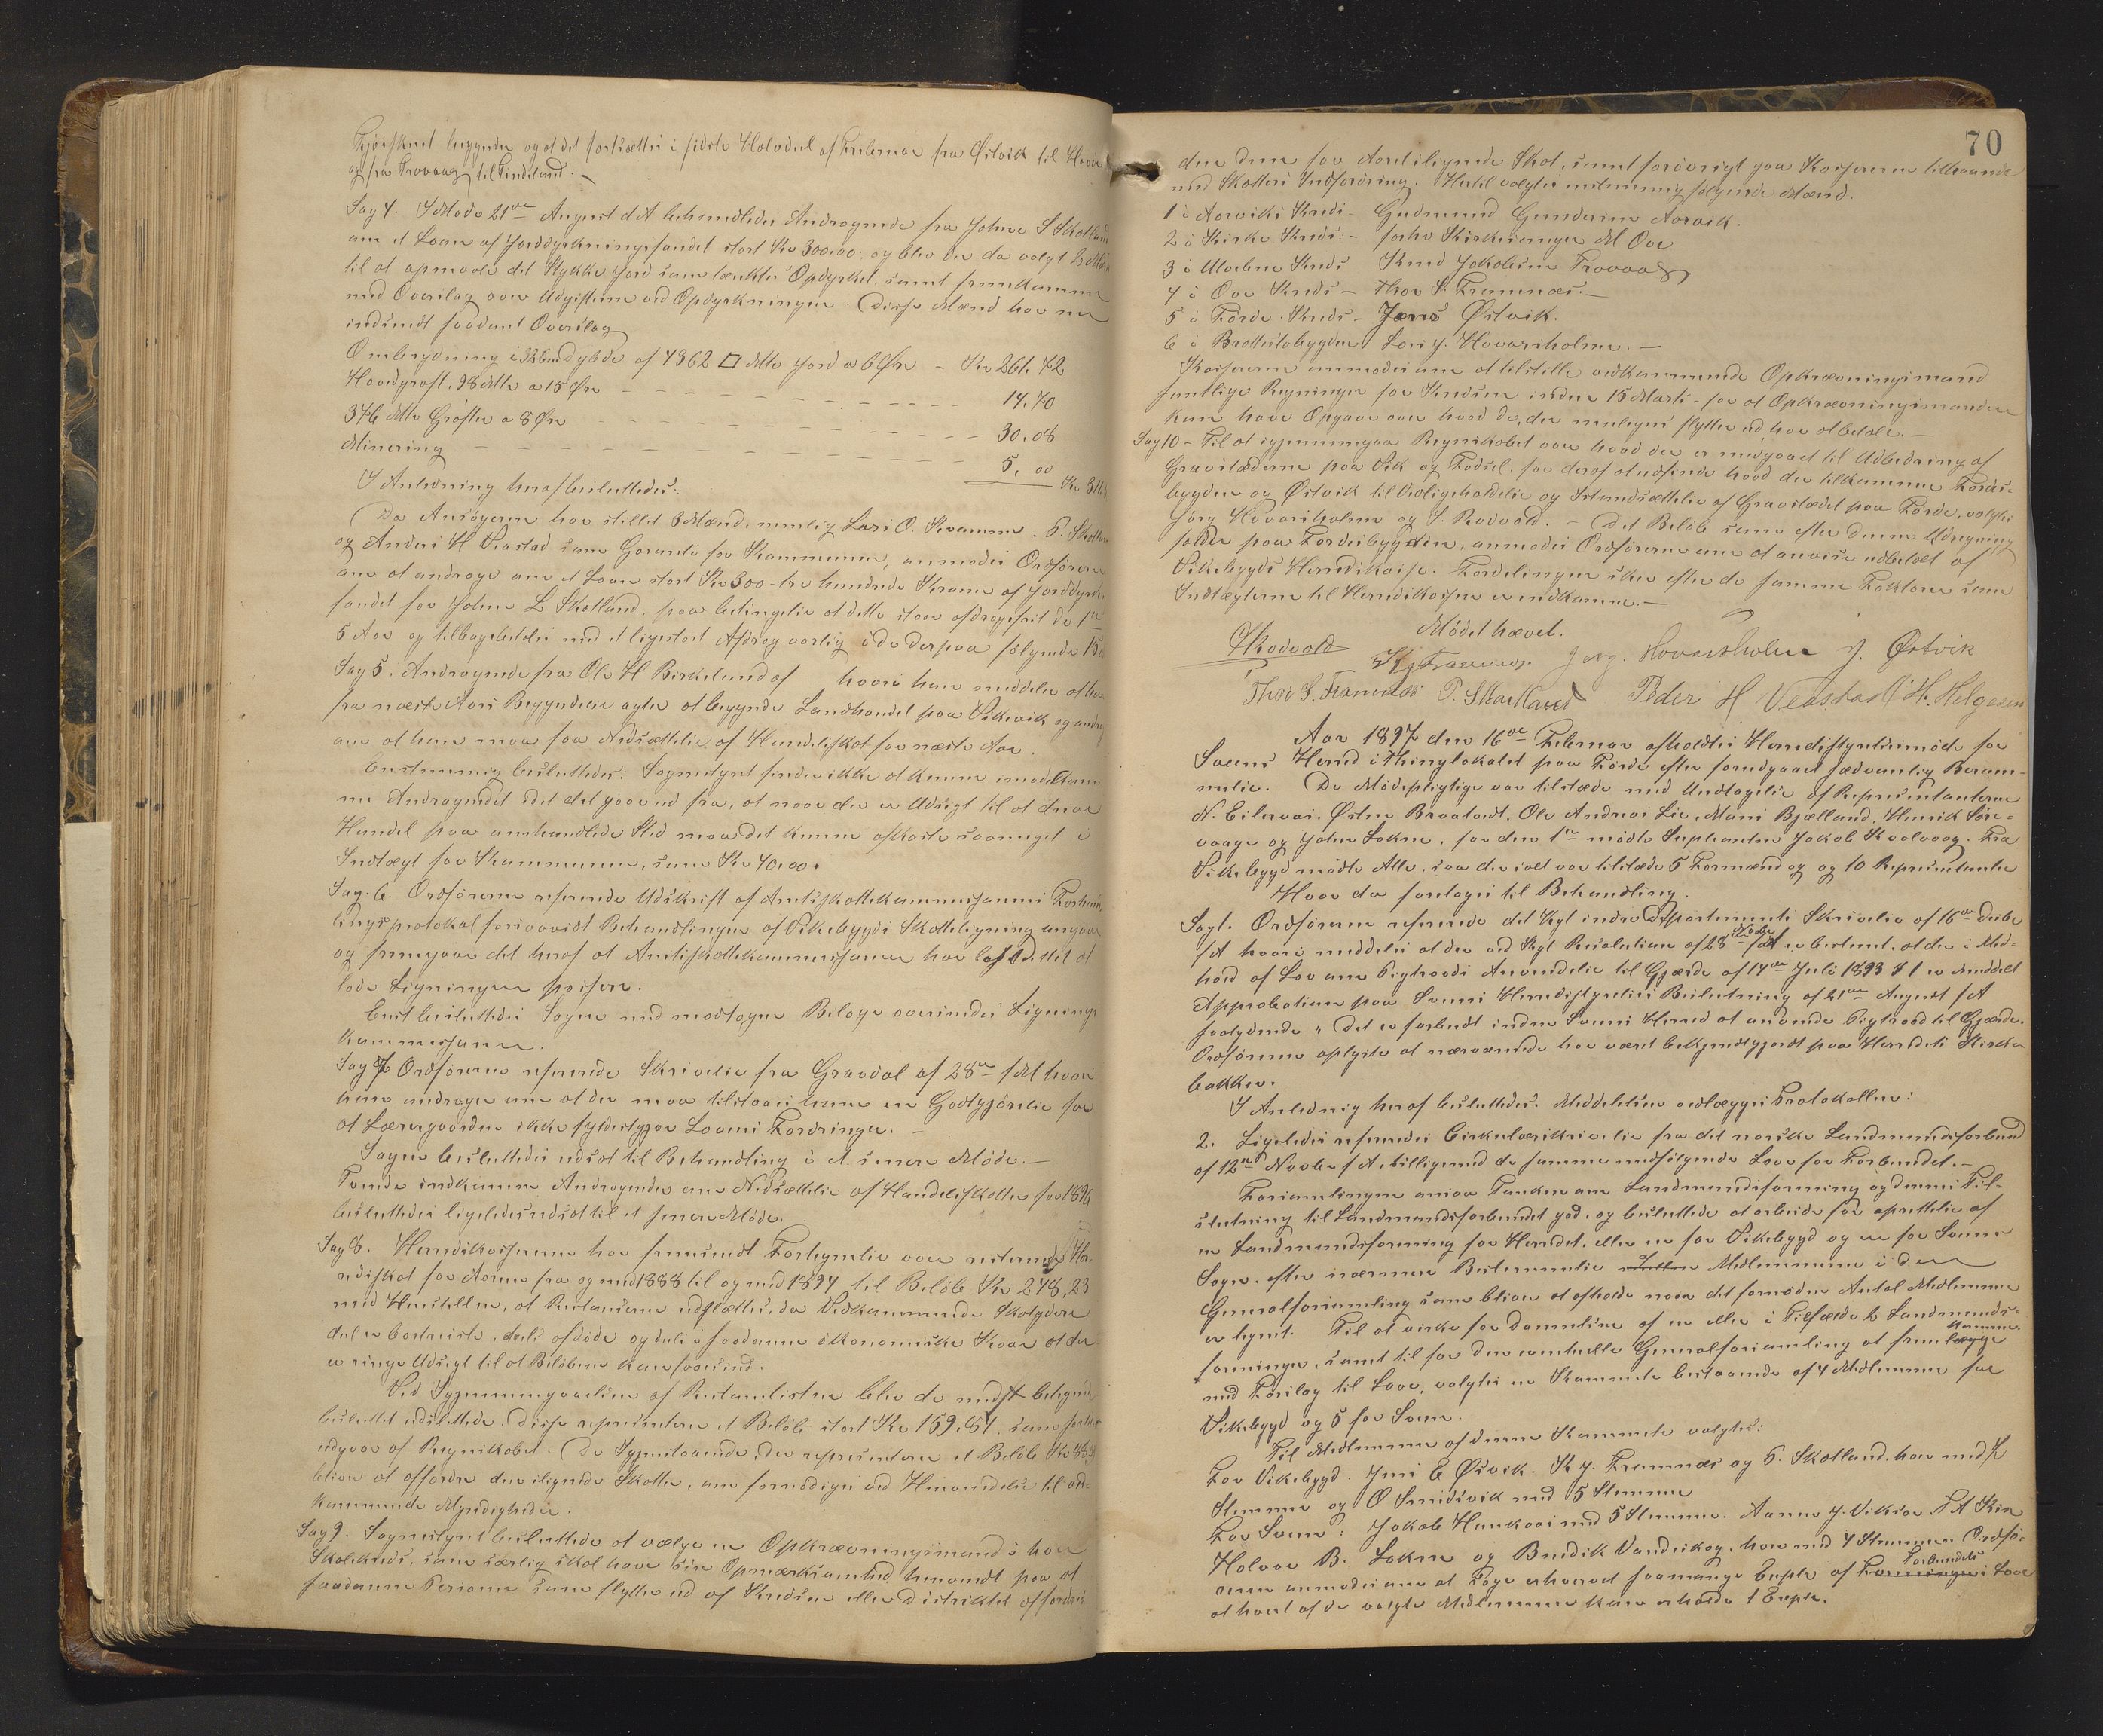 Tjøiskuet begynder og at det fortsættes i sidste Halvdel af Februar fra Østvik til Hovda
og fra Trovaag til Tindeland. –
Sag 4. I Møde 21de August d A behandledes Andragende fra Johne S Skotland
om et Laan af Jorddyrkningsfondet stort Kr 300.00, og blev der da valgt 2 Mænd
til at opmaale det Stykke Jord som tænktes Opdyrket, samt fremkomme
med Overslag over Udgifterne ved Opdyrkningen. Disse Mænd har nu
indsendt saadant Overslag
Ombrydning i Dybde af 4362 □ Mtr Jord a 6 Øre – Kr 261.72
Hovedgrøft. 98 Mtr a 15 Øre – 14.70
376 Mtr Grøfter a 8 Øre – 30.08
Minering – 5.00
Kr 311.
I Anledning heraf besluttedes:
Da Ansøgeren har stillet 3 Mænd, nemlig Lars O. Kvamme, P. Skotland
og Anders H Veastad som Garanti for Kommunen, anmodes Ordføreren
om at andrage om et Laan stort Kr 300 – tre hundrede Kroner af Jorddyrk.
fondet for Johne L Skotland, paa betingelse at dette staar afdragsfrit de 1ste
5 Aar og tilbagebetales med et ligestort Afdrag aarlig i de derpaa følgende 15
Sag 5. Andragende fra Ole H Birkelund af hvori han meddeler at han
fra næste Aars Begyndelse agter at begynde Landhandel paa Vikevik og andrager
om at han maa faa Nedsættelse af Handelsskat for næste Aar.
Enstemmig besluttedes: Sognestyret finder ikke at kunne imødekomme
Andragendet idet det gaar ud fra, at naar der er Udsigt til at drive
Handel paa omhandlede Sted maa det kunne afkaste saameget i
Indtægt for Kommunen, som Kr 40.00.
Sag. 6. Ordføreren refererede Udskrift af Amtsskattekommissionens Forhand-
lingsprotokol forsaavidt Behandlingen af Vikebygds Skatteligning angaar
og fremgaar det heraf at Amtsskattekommissionen har besluttet at
lade Ligningen passere.
Enst besluttedes Sagen med modtagne Bilage oversendes Lignings
kommissionen.
Sag 7 Ordføreren refererede Skrivelse fra Gravdal af 28de f M hvori
han andrager om at der maa tilstaaes ham en Godtgjørelse for
at Lærergaarden ikke fyldestgjør Lovens Fordringer. –
Sagen besluttedes udsat til Behandling i et senere Møde. –
Tvende indkomne Andragender om Nedsættelse af Handelsskatten for 1896
besluttedes ligeledes udsat til et senere Møde.
Sag 8. Herredskassereren har fremsendt Fortegnelse over resterende Her-
redsskat for Aarene fra og med 1888 til og med 1894 til Beløb Kr 248,23
med Henstillen, at Restancerne udslettes, da Vedkommende Skatydere
del er bortreiste, dels afdøde og dels i saadanne økonomiske Kaar at der
er ringe Udsigt til at Beløbene kan faaes ind.
Ved Igjennemgaaelsen af Restancelisten blev de med + betegnede
besluttet udslettede. Disse repræsenterer et Beløb stort Kr 159.81. som
udgaar af Regnskabet. De Igjenstaaende, der repræsenterer et Beløb Kr 88.
bliver at affordre den ilignede Skatten, om fornødiges ved Henvendelse til ved-
kommende Myndigheder.
Sag 9. Sognestyret besluttede at vælge en Opkrævningsmand i hver
Skolekreds, som særlig skal have sin Opmærksomhed henvendt paa at
saadanne Personer som flytter ud af Kredsen eller Distriktet affordres
70
den dem for Aaret ilignede Skat, samt forøvrigt gaa Kassereren tilhaande
med Skattens Indfordring. Hertil valgtes enstemmig følgende Mænd.
1 i Aarviks Kreds – Gudmund Gundersen Aarvik.
2 i Kirke Kreds: – forhv Kirkesanger M Ove
3 i Klæben Kreds Knud Jakobsen Trovaag
4 i Ove Kreds – Thor S. Framnæs. –
5 i Førde Kreds – Jens Østvik.
6 i Brattebøbygden Lars J. Hovarsholm. –
Kassereren anmodes om at tilstille vedkommende Opkrævningsmand
samtlige Regninger for Kredsen inden 15 Marts – for at Opkrævningsmanden
kan have Opgave over hvad de, der muligens flytter ud, har at betale. –
Sag 10 – Til at igjennemgaa Regnskabet over hvad der er medgaaet til Udbedring af
Gravstæderne paa Vik og Fødsel. for deraf at udfinde hvad der tilkommer Førdes-
bygden og Østvik til Vedligeholdelse og Istandsættelse af Gravstedet paa Førde, valgtes
Jørg Hovarsholm og S. Rødvold. – Det Beløb som efter denne Udregning
falder paa Fordesbygden, anmodes Ordføreren om at anvise udbetalt af
Vikebygds Herredskasse. Fordelingen sker efter de samme Faktorer som
Indtægterne til Herredskassen er indkomne. –
Mødet hævet.
S Rødvold K J Framnes. Jørg. Hovarsholm J. Østvik
Thor S. Framnæs P. Skotland Peder H Veastad H. Helgesen
Aar 1897 den 16de Februar afholdtes Herredsstyrelsesmøde for
Sveens Herred i Thinglokalet paa Førde efter forudgaaet sædvanlig Beram-
melse. De Mødepligtige var tilstæde med Undtagelse af Repræsentanterne
N. Eileraas, Østen Braatvedt, Ole Andreas Lie, Mons Bjælland, Henrik Løn-
vaage og John Lokne, for den 1ste mødte Suppleanten Jakob Kvalvaag. Fra
Vikebygd mødte Alle, saa der ialt var tilstæde 5 Formænd og og 10 Repræsentanter
Hvor da foretoges til Behandling.
Sag 1. Ordføreren refererede det Kgl indre Departements Skrivelse af 16de Decbr
f A hvori meddeles at der ved Kgl Resolution af 28de Novbr f A er bestemt, at der i Med-
hold af Lov om Pigtraads Anvendelse til Gjærde af 14de Juli 1893 § 1 er meddelt
Approbation paa Sveens Herredsstyrelses Beslutning af 21de August f A
saalydende „Det er forbudt inden Sveens Herred at anvende Pigtraad til Gjærde.
Ordføreren oplyste at nærværende har været bekjendtgjordt paa Herredets Kirke-
bakker.
I Anledning heraf besluttedes. Meddelelsen vedlægges Protokollen:
2. Ligeledes refereredes Cirkulærskrivelse fra det norske Landmandsforbund
af 12te Novbr f A, tilligemed de samme medfølgende Love for Forbundet. –
Forsamlingen ansaa Tanken om Landmandsforening og dennes Til-
slutning til Landmandsforbundet god, og besluttede at arbeide for oprettelse af
en Landmandsforening for Herredet, eller en for Vikebygd og en for Sveen
Sogn. efter nærmere Bestemmelse Medlemmerne i den
Generalforsamling som bliver at afholde naar det fornødne Antal Medlemmer
er tegnet. Til at virke for Dannelsen af en eller i Tilfælde 2 Landmands-
foreninger, samt til for den eventuelle Generalforsamling at frem lægge komme
med Forslag til Love, valgtes en Komite bestaaende af 4 Medlemmer for
Vikebygd og 5 for Sveen.
Til Medlemmer af denne Komite valgtes:
For Vikebygd. Jens E Østvik. K J. Framnæs og P. Skotland. hver med 6
Stemmer og O Smidsvik med 5 Stemmer
For Sveen: Jakob Haukaas med 5 Stemmer. Aamm J. Viksør.
Halvor B. Lokne og Bendik Vandaskog. hver med 4 Stemmer. Ordfø-
reren anmodes om at søge erhvervet saamange Explr af Foreningens Forbundets Love
at hvert af de valgte Medlemmer kan erholde 1 Expl.